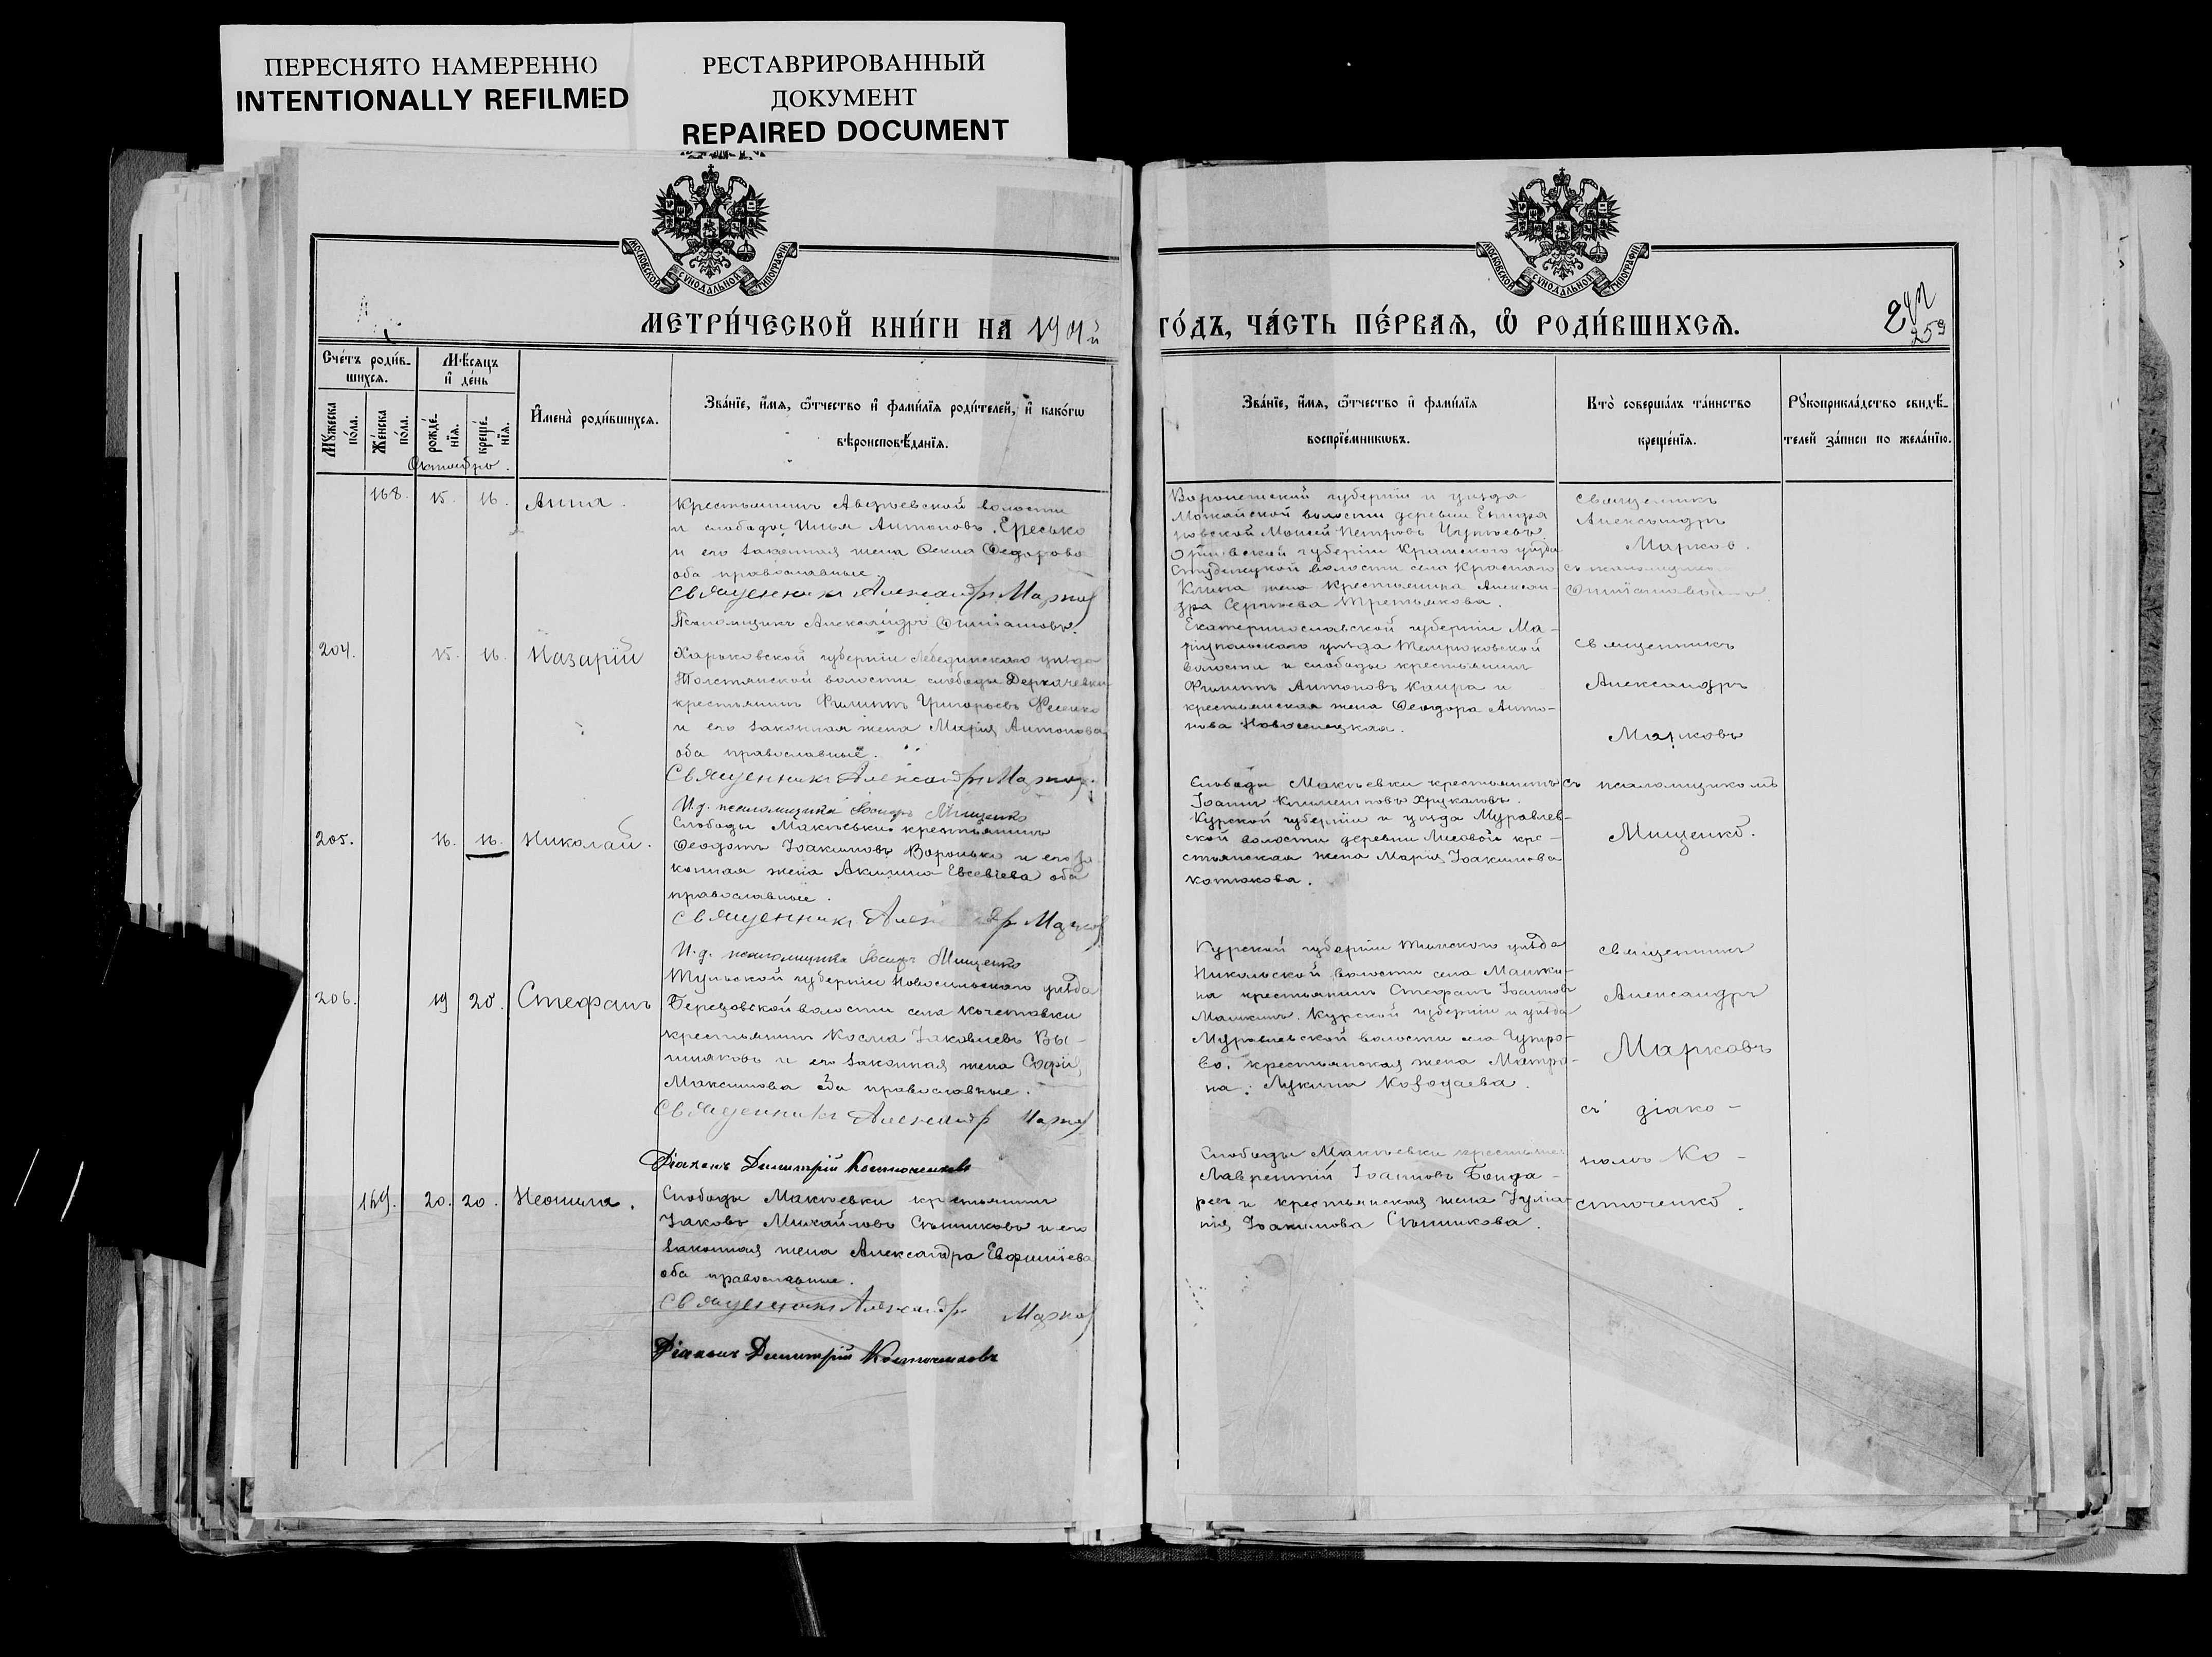 ПЕРЕСНЯТО НАМЕРЕННО
INTENTIONALLY REFILMED
РЕСТАВРИРОВАННЫЙ
ДОКУМЕНТ
REPAIRED DOCUMENT
МОСКОВСКОЙ СѴНОДАЛЬНОЙ ТИПОГРАФІИ
МОСКОВСКОЙ СѴНОДАЛЬНОЙ ТИПОГРАФІИ
МЕТРИ́ЧЕСКОЙ КНИ́ГИ НА 1901й
ГО́ДЪ, ЧА́СТЬ ПЕ́РВАѦ, Ѡ҆ РОДИ́ВШИХСѦ.
259
Сче́тъ роди́в-
шихсѧ.
Мꙋ́жеска по́ла.
Же́нска по́ла.
Мѣ́сѧцъ
и҆ де́нь
рожде́нїѧ.
креще́нїѧ.
И҆мена̀ роди́вшихсѧ.
Зва́нїе, и҆́мѧ, ѻ҆́тчество и҆ фами́лїѧ роди́телей, и҆ како́гѡ
вѣроисповѣ́данїѧ.
Зва́нїе, и҆́мѧ, ѻ҆́тчество и҆ фами́лїѧ
воспрїе́мникѡвъ.
Кто̀ соверша́лъ та́инство
креще́нїѧ.
Рꙋкоприкла́дство свидѣ́-
телей за́писи по жела́нїю.
Октябрь.
168. 15. 16. Анна.
Крестьянинъ Авдѣевской волости
и слободы Илья Антоновъ Ересько
и его законная жена Ѳекла Ѳедорова
оба православные.
Священникъ Александръ Марковъ
Псаломщикъ Александръ
Воронежской губерніи и уѣзда
Можайской волости деревни
Моисей Петровъ
губерніи уѣзда
волости села Краснаго
Клина жена крестьянина Алексан-
дра Сергѣева Третьякова.
Священникъ
Александръ
Марков.
съ псаломщикомъ
204. 15. 16. Назарій
Харьковской губерніи Лебединскаго уѣзда
Толстянской волости слободы Деркачевки
крестьянинъ Филиппъ Григорьевъ Фесенко
и его законная жена Марія Антонова
оба православные.
Священникъ Александръ Марковъ.
И.д. псаломщика Іосифъ Мищенко
Екатеринославской губерніи Ма-
ріупольскаго уѣзда Темрюковской
волости и слободы крестьянинъ
Филиппъ Антоновъ Каира и
крестьянская жена Ѳеодора Анто-
нова Новоселецкая.
Священникъ
Александръ
Марковъ
205. 16. 16. Николай.
Слободы Макѣевки крестьянинъ
Ѳеодотъ Іоакимовъ Воронько и его за
конная жена Акилина Евсевіева оба
православные.
Священникъ Александръ Марковъ
И.д. псаломщика Іосифъ Мищенко
Слободы Макѣевки крестьянинъ
Іоаннъ Климентовъ Хрукаловъ.
Курской губерніи и уѣзда Муравлев-
ской волости деревни Лисовой кре-
стьянская жена Марія Іоакимова
Котюкова.
съ псаломщикомъ
Мищенко.
206. 19 20. Стефанъ
Тульской губерніи Новосильскаго уѣзда
Березовской волости села Кочетовки
крестьянинъ Косма Іаковлевъ Вы-
шняковъ и его законная жена Софія
Максимова оба православные.
Священникъ Александръ Марковъ
Діаконъ Димитрій Костюченковъ
Курской губерніи Тимскаго уѣзда
Никольской волости села Машки-
на крестьянинъ Стефанъ Іоанновъ
Машкинъ. Курской губерніи и уѣзда
Муравлевской волости села
крестьянская жена Матро-
на Лукина
Священникъ
Александръ
Марковъ
съ діако-
номъ Ко-
стюченко.
169. 20. 20. Неонила.
Слободы Макѣевки крестьянинъ
Іаковъ Михайловъ Сѣнниковъ и его
законная жена Александра Евфиміева
оба православные.
Священникъ Александръ Марковъ
Діаконъ Димитрій Костюченковъ
Слободы Макѣевки крестьяне:
Лаврентій Іоанновъ Бонда-
рев и крестьянская жена Іуліа-
нія Іоакимова Сѣнникова.